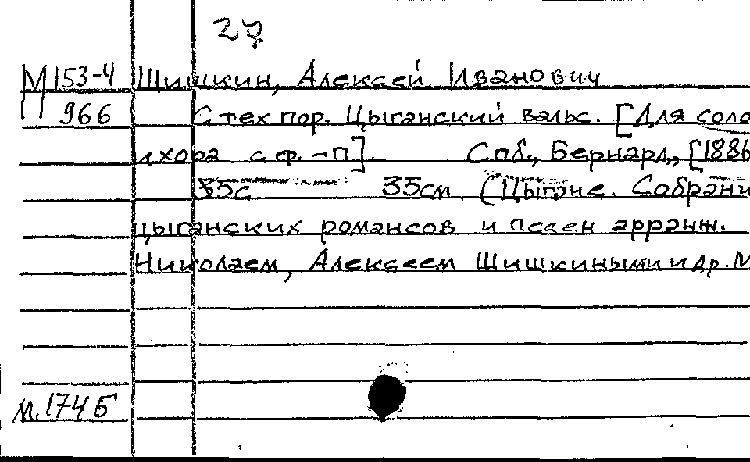 27
М 153-4 Шишкин, Алексей Иванович
966 С тех пор. Цыганский вальс. [Для соло
и хора с ф.-п]. Спб., Бернард, [1886
35с 35см (Цыгане. Собрани
цыганских романсов и песен арранж.
Николаем, Алексеем Шишкиными и др. №
м.174Б